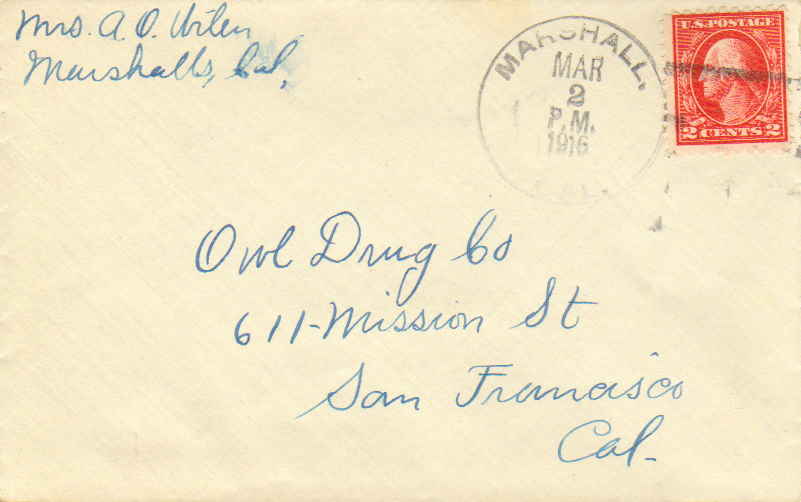 Mrs. A. O. Wilen
Marshalls, Cal,
MARSHALL,
MAR
2
P.M.
1916
CAL.
U.S. POSTAGE
2 CENTS 2
Owl Drug Co
611-Mission St
San Francisco
Cal-